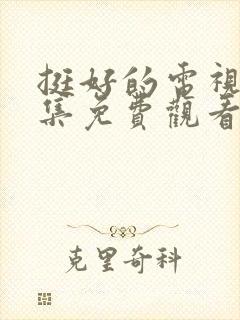 挺好的電視
集免費觀看
克里奇科